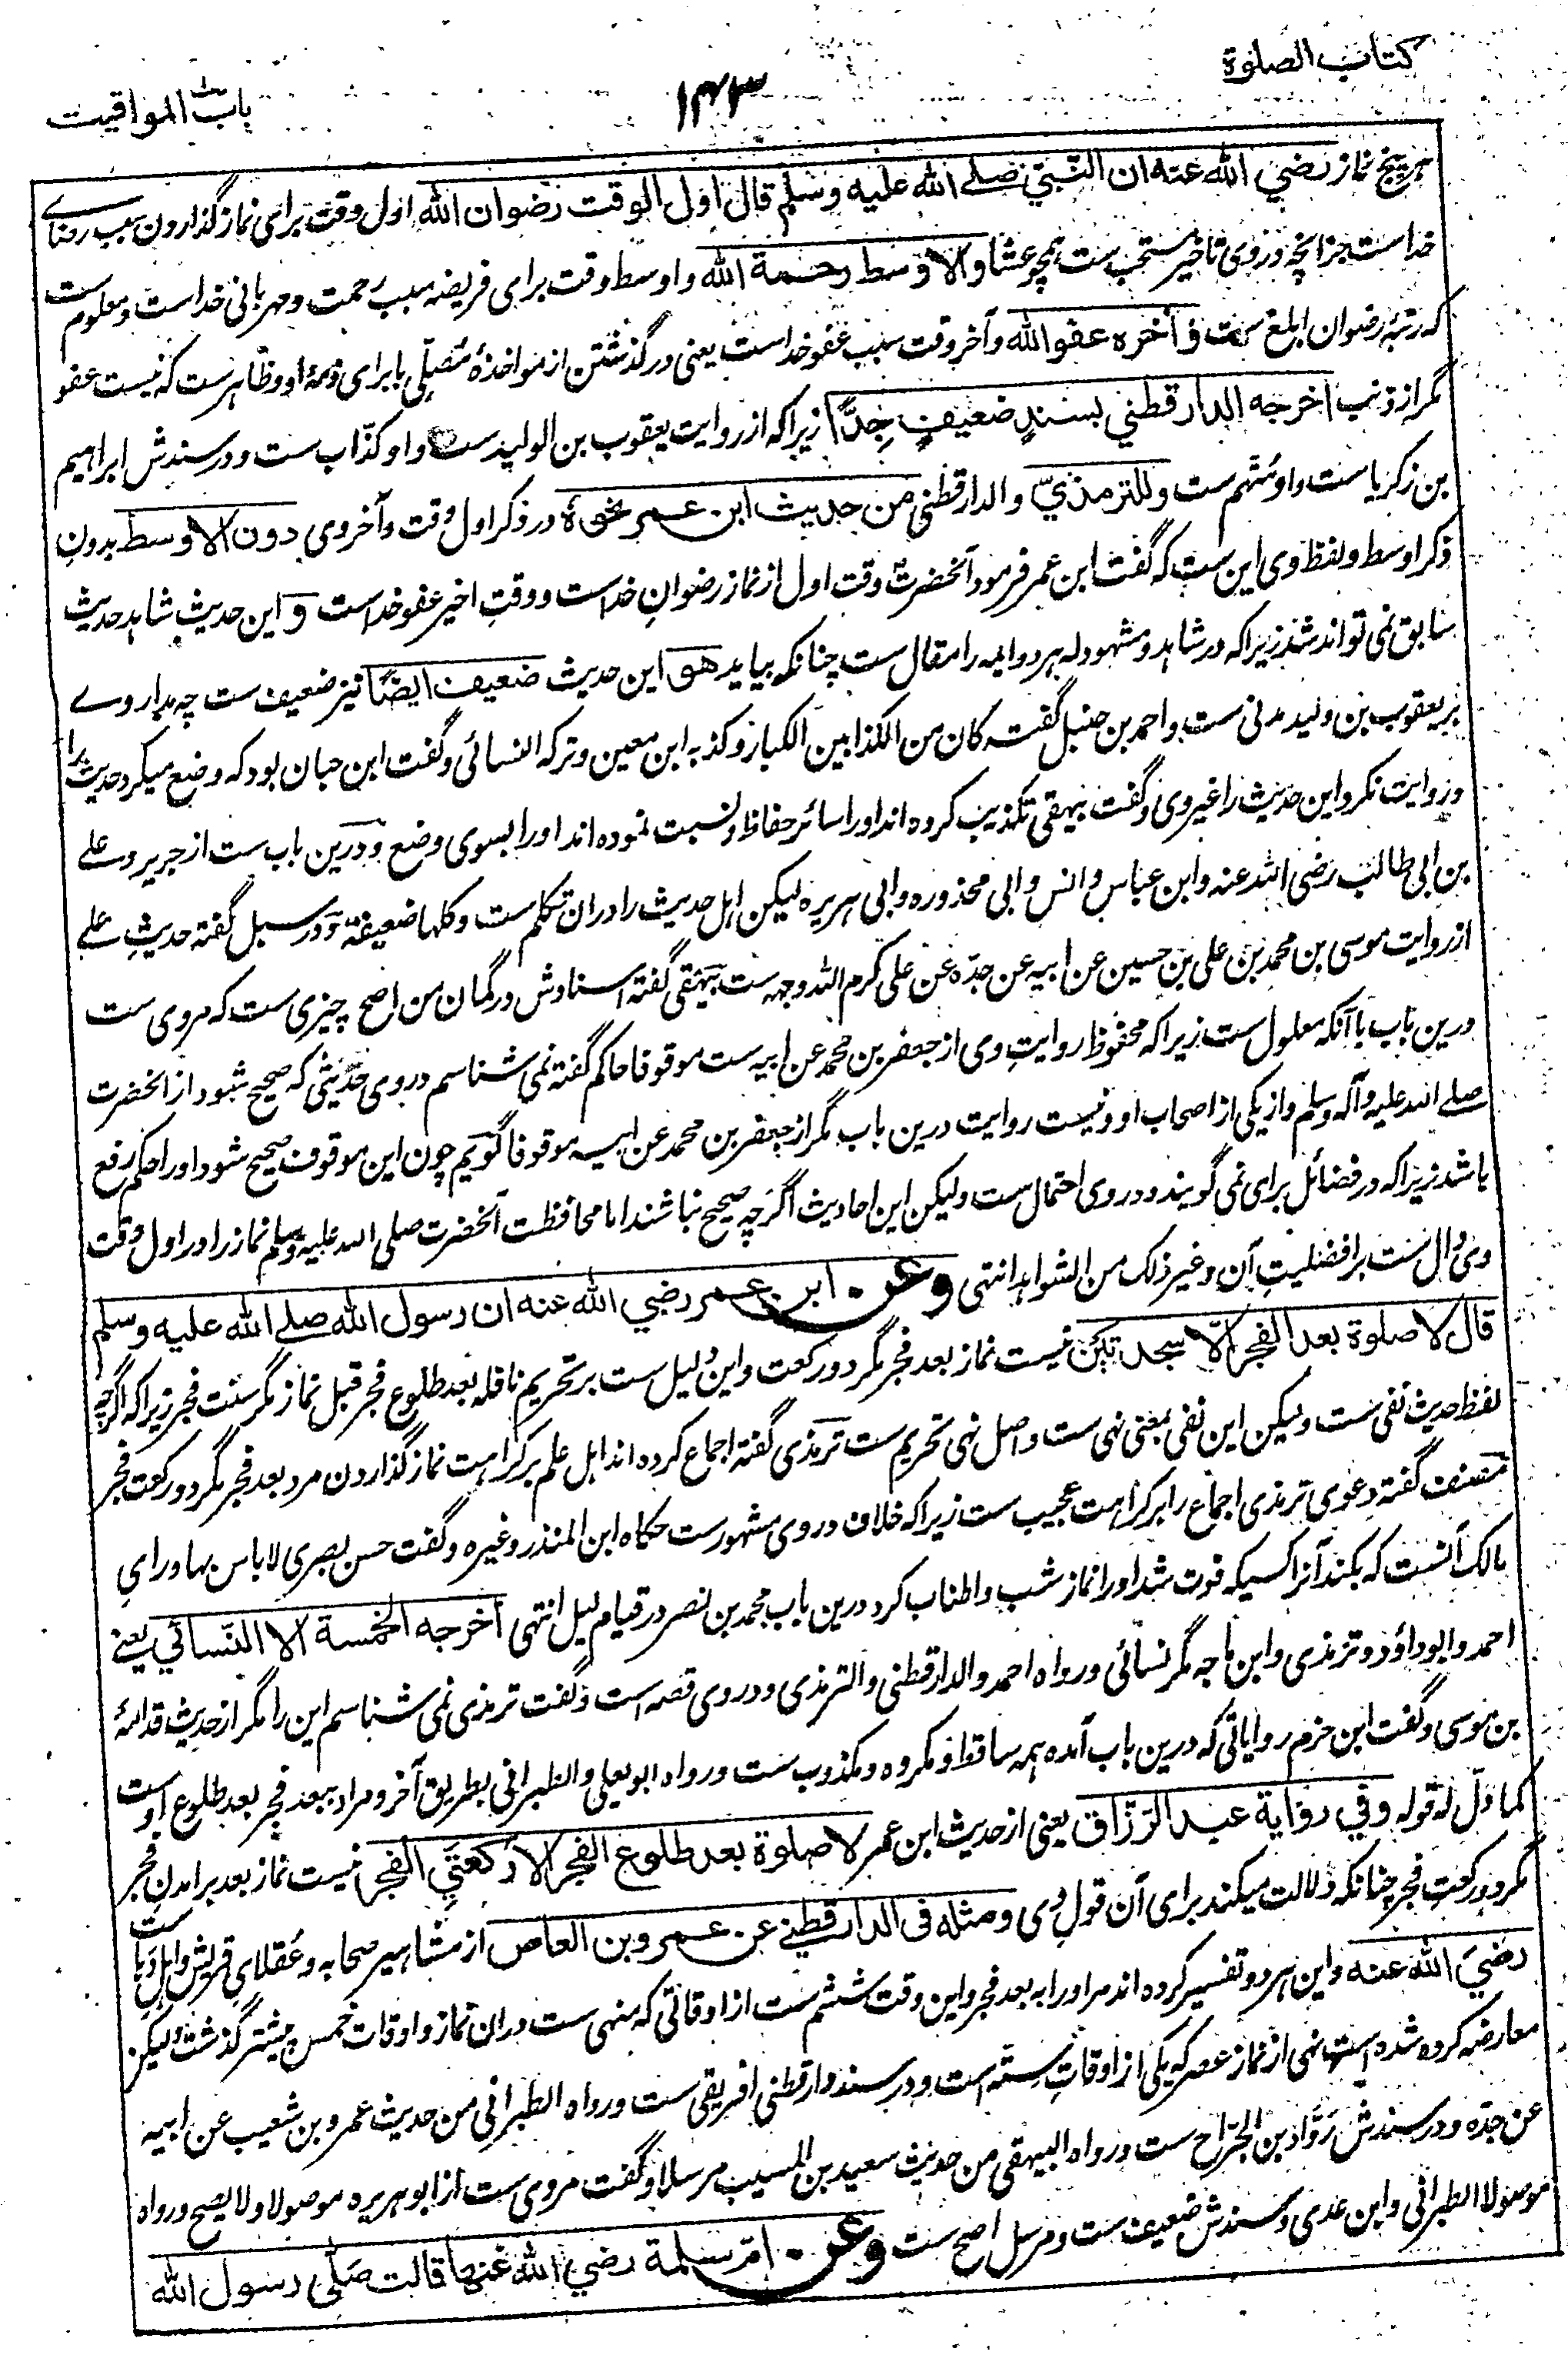 كتاب الصلوة
۱۴۳
باب المواقيت
هر پنج نماز رضي الله عنه ان النبي صلے الله عليه وسلم قال اول الوقت رضوان الله اول وقت برای نماز گذاردن سبب رضای
خداست جز آنچه در وی تاخیر مستحب ست همچو عشا والاوسط رحمة الله واوسط وقت برای فریضه سبب رحمت ومهربانی خداست ومعلوم ست
که رتبۂ رضوان ابلغ ست وآخره عفو الله وآخر وقت سبب عفو خداست یعنی درگذشتن از مواخذۂ مصلی یا برای ذمۂ او وظاهرست که نیست عفو
مگر از ذنب اخرجه الدارقطني بسندٍ ضعيفٍ جدًّا زیراکه از روایت یعقوب بن الولیدست واو کذّاب ست ودر سندش ابراهیم
بن زکریا ست واو متّهم ست وللترمذيّ والدارقطنی من حديث ابن عمر نحوهٗ در ذکر اول وقت وآخر وی دون الاوسط بدونِ
ذکر اوسط ولفظ وی این ست که گفت ابن عمر فرمود آنحضرت وقت اول از نماز رضوانِ خداست ووقتِ اخیر عفو خداست و این حدیث شاهد حدیث
سابق نمی تواند شد زیراکه در شاهد ومشهود له هر دو ایمه را مقال ست چنانکه بیاید هو این حدیث ضعيف ايضًا نیز ضعیف ست چه مدار وے
بر یعقوب بن ولید مدنی ست واحمد بن حنبل گفته کان من الکذابین الکبار وکذبه ابن معین وترکه النسائی وگفت ابن حبان بود که وضع میکرد حدیث را
وروایت نکرد این حدیث را غیر وی وگفت بیهقی تکذیب کرده اند او را سائر حفاظ ونسبت نموده اند او را بسوی وضع ودرین باب ست از جریر وعلی
بن ابی طالب رضی الله عنه وابن عباس وانس وابی محذوره وابی هریره لیکن اهل حدیث را دران تکلم ست وکلها ضعیفة ودر سبل گفته حدیثِ علے
از روایت موسی بن محمد بن علی بن حسین عن ابیه عن جدّه عن علی کرم الله وجهه ست بیهقی گفته اسنادش در گمان من اصح چیزی ست که مروی ست
درین باب با آنکه معلول ست زیراکه محفوظ روایتِ وی از جعفر بن محمد عن ابیه ست موقوفا حاکم گفته نمی شناسم در وی حدیثی که صحیح شود از آنحضرت
صلے الله علیه وآله وسلم واز یکی از اصحاب او ونیست روایت درین باب مگر از جعفر بن محمد عن ابیه موقوفا گویم چون این موقوف صحیح شود او را حکم رفع
باشد زیراکه در فضائل برای نمی گویند ودر وی احتمال ست ولیکن این احادیث اگرچه صحیح نباشند اما محافظت آنحضرت صلی الله علیه وسلم نماز را در اول وقت
وی دال ست بر افضلیتِ آن وغیر ذلک من الشواهد انتهی وعن ابن عمر رضي الله عنه ان رسول الله صلے الله عليه وسلم
قال لا صلوة بعد الفجر الّا سجدتين نیست نماز بعد فجر مگر دو رکعت واین دلیل ست بر تحریم نافله بعد طلوع فجر قبل نماز مگر سنت فجر زیراکه اگرچه
لفظ حدیث نفی ست ولیکن این نفی بمعنی نهی ست واصل نهی تحریم ست ترمذی گفته اجماع کرده اند اهل علم بر کراهت نماز گذاردن مرد بعد فجر مگر دو رکعت فجر
مصنف گفته دعوی ترمذی اجماع را بر کراهت عجیب ست زیراکه خلاف در وی مشهورست حکاه ابن المنذر وغیره وگفت حسن بصری لا باس بها ورایِ
مالک آنست که بکند آنرا کسیکه فوت شد او را نماز شب واطناب کرد درین باب محمد بن نصر در قیام لیل انتهی اخرجه الخمسة الا النسائي یعنے
احمد وابو داؤد وترمذی وابن ماجه مگر نسائی ورواه احمد والدارقطنی والترمذی ودر وی قصه است وگفت ترمذی نمی شناسم این را مگر از حدیث قدامۂ
بن موسی وگفت ابن حزم روایاتی که درین باب آمده همه ساقط ومکروه ومکذوب ست ورواه ابو یعلی والطبرانی بطریق آخر ومراد ببعد فجر بعد طلوع اوست
کما دلّ له قوله وفي رواية عبد الرزّاق یعنی از حدیث ابن عمر لا صلوة بعد طلوع الفجر الا ركعتي الفجر نیست نماز بعد برآمدنِ فجر
مگر دو رکعتِ فجر چنانکه دلالت میکند برای آن قولِ وی ومثله فى الدارقطنے عن عمرو بن العاص از مشاهیر صحابه وعُقلایِ قریش واهل دَهاست
رضي الله عنه واین هر دو تفسیر کرده اند مراد را به بعد فجر واین وقت ششم ست از اوقاتی که منهی ست دران نماز واوقات خمس پیشتر گذشت ولیکن
معارضه کرده شده است نهی از نماز عصر که یکی از اوقاتِ ستّه است ودر سند دارقطنی افریقی ست ورواه الطبرانی من حدیث عمرو بن شعیب عن ابیه
عن جدّه ودر سندش رَوّاد بن الجرّاح ست ورواه البیهقی من حدیث سعید بن المسیب مرسلا وگفت مروی ست از ابو هریره موصولا ولا یصح ورواه
موصولا الطبرانی وابن عدی وسندش ضعیف ست ومرسل اصح ست وعن امّ سلمة رضي الله عنها قالت صلّى رسول الله